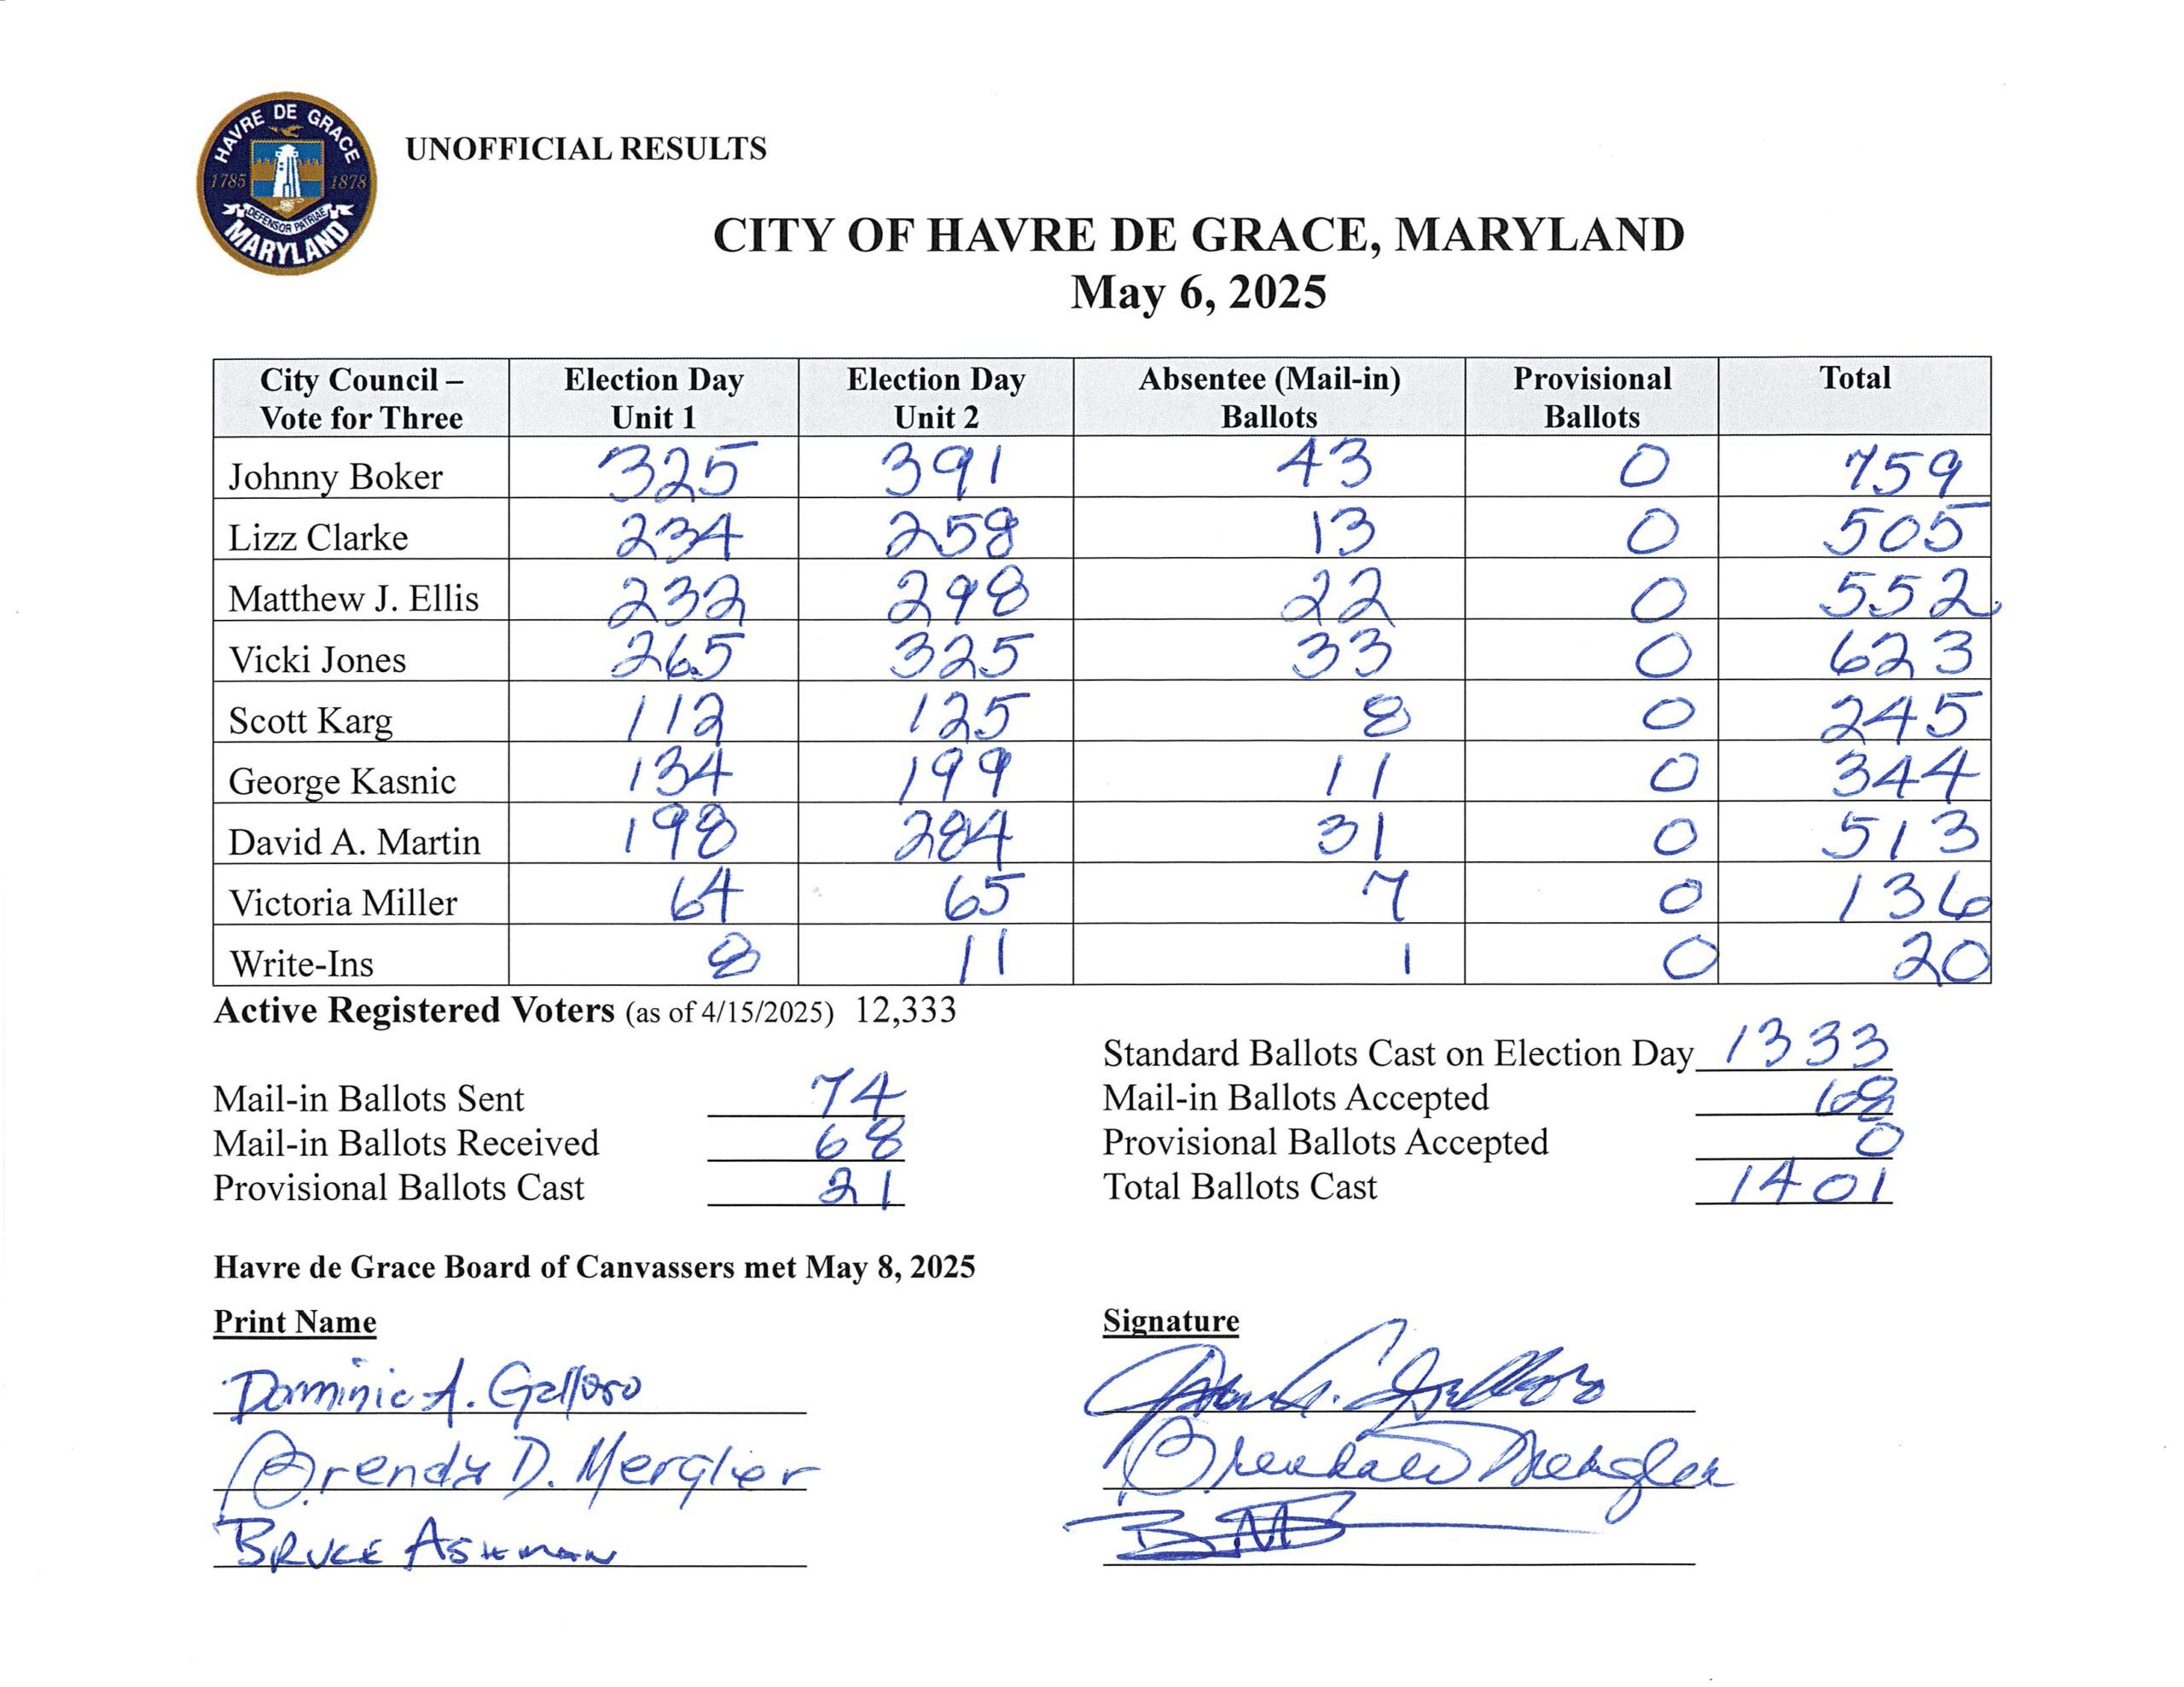 HAVRE DE GRACE
1785 1878
DEFENSOR PATRIAE
MARYLAND
UNOFFICIAL RESULTS
CITY OF HAVRE DE GRACE, MARYLAND
May 6, 2025
City Council – Election Day Election Day Absentee (Mail-in) Provisional Total
Vote for Three Unit 1 Unit 2 Ballots Ballots
Johnny Boker 325 391 43 0 759
Lizz Clarke 234 258 13 0 505
Matthew J. Ellis 232 298 22 0 552
Vicki Jones 265 325 33 0 623
Scott Karg 112 125 8 0 245
George Kasnic 134 199 11 0 344
David A. Martin 198 284 31 0 513
Victoria Miller 64 65 7 0 136
Write-Ins 8 11 1 0 20
Active Registered Voters (as of 4/15/2025) 12,333
Standard Ballots Cast on Election Day 1333
Mail-in Ballots Sent 74 Mail-in Ballots Accepted 68
Mail-in Ballots Received 68 Provisional Ballots Accepted 0
Provisional Ballots Cast 21 Total Ballots Cast 1401
Havre de Grace Board of Canvassers met May 8, 2025
Print Name Signature
Dominic A. Galloso
Brenda D. Mergler Brenda D Mergler
BRUCE ASHMAN